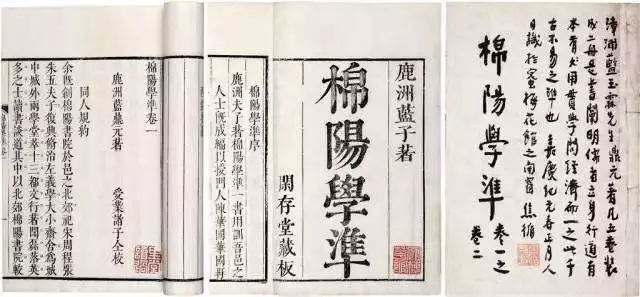 漳浦藍玉霖先生鼎元著凡五卷裝
成二冊是書闡明儒者立身行道有
本有末用貫學問經濟而一之此千
古不易之準也 嘉慶紀元春正月人
日識於蜜梅花館之南窗 焦循
棉陽學準 卷一之
卷二
鹿洲藍子著
棉陽學準
閑存堂藏板
棉陽學準序
鹿洲夫子著棉陽學準一書用訓吾邑之
人士既成編以授門人陳華國華國再
棉陽學準卷一
鹿洲藍鼎元著 受業諸子仝校
同人規約
余既創棉陽書院於邑之北郊祀宋周程張
朱五夫子復興脩治左義學大小齋舍為
中城外兩學堂萃十三都文行若閎磊落英
多之士讀書談道其中以北郊棉陽書院較